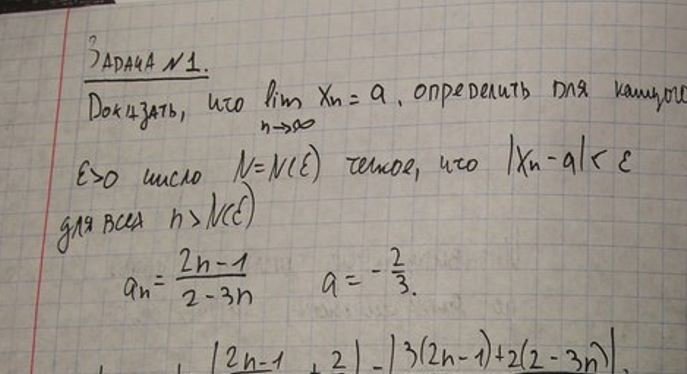 Задача №1.
Доказать, что lim Xn = a. определить для каждого
n→∞
ε>0 число N=N(ε) такое, что |Xn-a|< ε
для всех n>N(ε)
an = (2n-1)/(2-3n) a = -2/3.
|(2n-1) + 2| = |3(2n-1)+2(2-3n)|